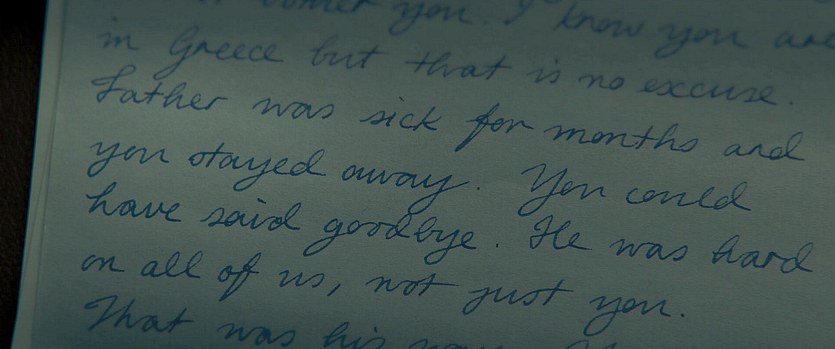 you. I know you are
in Greece but that is no excuse.
Father was sick for months and
you stayed away. You could
have said goodbye. He was hard
on all of us, not just you.
That was his way.